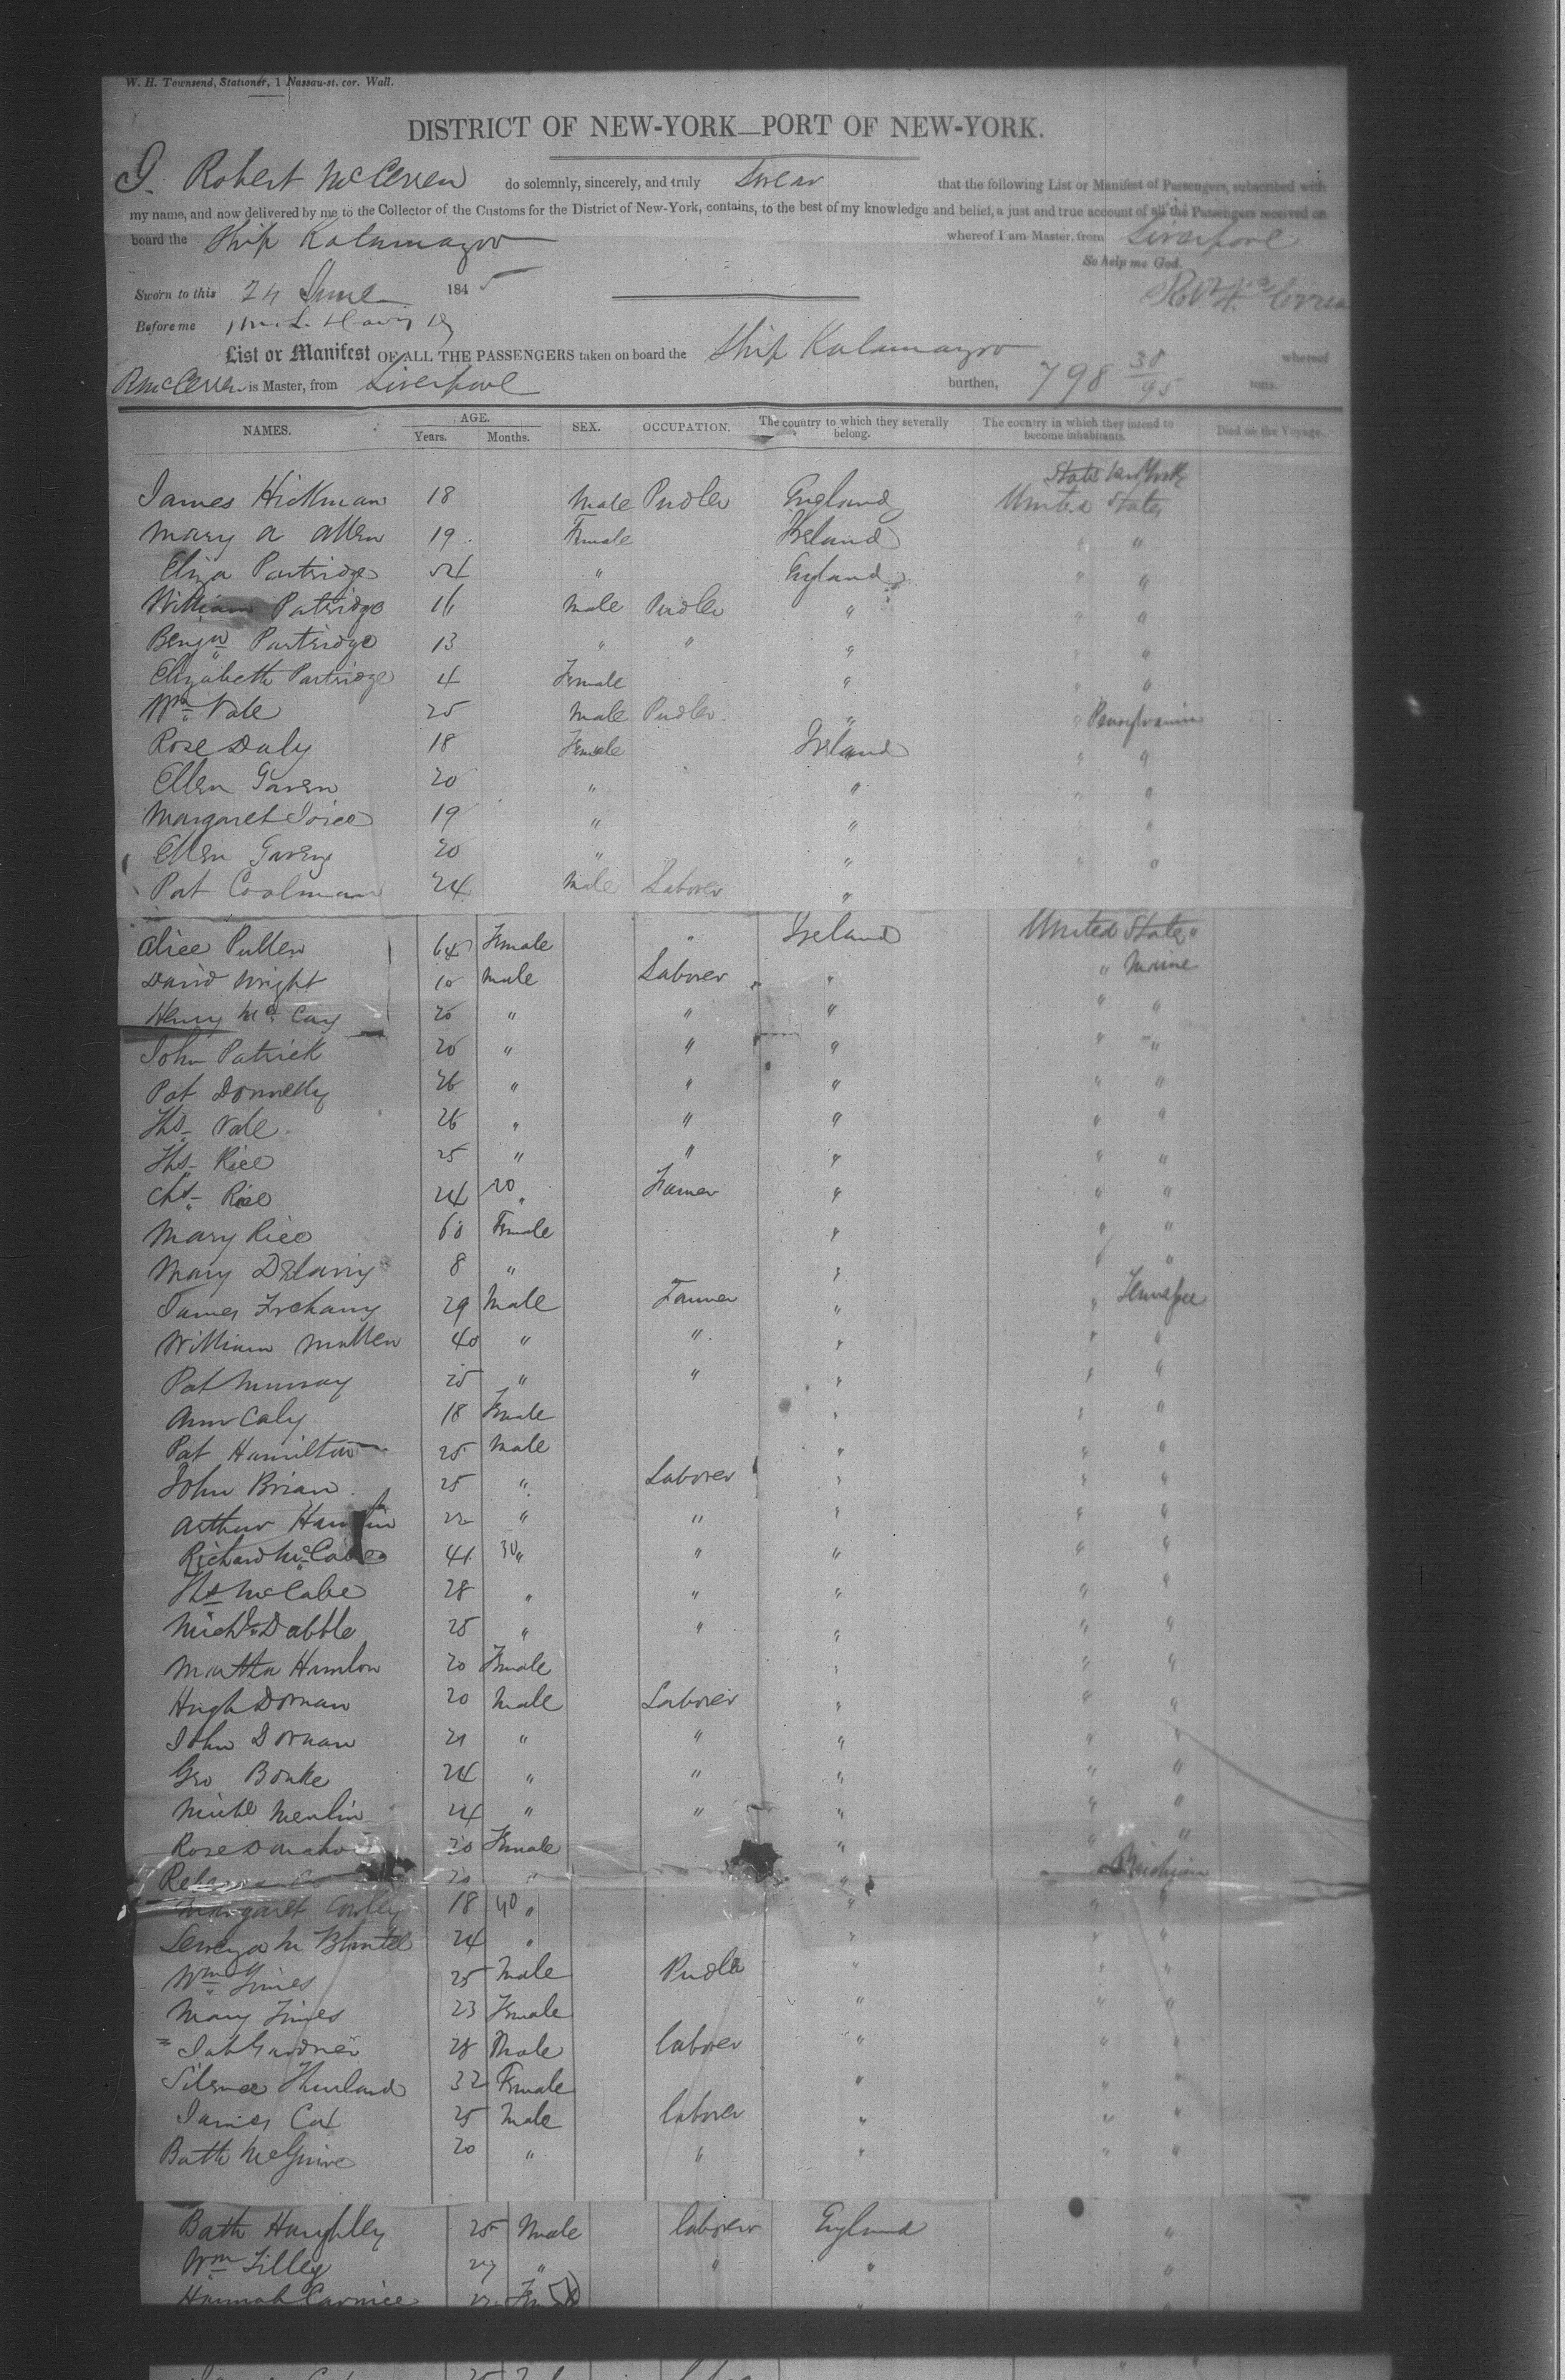 W. H. Townsend, Stationer, 1 Nassau-st. cor. Wall.
DISTRICT OF NEW-YORK—PORT OF NEW-YORK.
I. Robert McCerren do solemnly, sincerely, and truly Swear that the following List or Manifest of Passengers, subscribed with
my name, and now delivered by me to the Collector of the Customs for the District of New-York, contains, to the best of my knowledge and belief, a just and true account of all the Passengers received on
board the Ship Kalamazoo whereof I am Master, from Liverpool
So help me God.
Sworn to this 24 June 1845
Before me
List or Manifest OF ALL THE PASSENGERS taken on board the Ship Kalamazoo whereof
R McCerren is Master, from Liverpool burthen, 798 38/95 tons.
NAMES. AGE. Years. Months. SEX. OCCUPATION. The country to which they severally belong. The country in which they intend to become inhabitants. Died on the Voyage.
State New York
James Hickman 18 Male Pudler England United States
Mary A Allen 19 Female Ireland " "
Eliza Partridge " England " "
William Patridge 16 Male Pudler " " "
Benjn Partridge 13 " " " " "
Elizabeth Partridge 4 Female " " "
Wm Vale 25 Male Pudler " " Pennsylvania
Rose Daly 18 Female Ireland " "
Ellen Gaven 20 " " " "
Margaret Joice 19 " " " "
Ellen 20 " " " "
Pat Coolman 24 Male Laborer "
Alice Pullen 64 Female " Ireland United States "
David Wright Male Laborer " " Maine
Henry McCay 20 " " " " "
John Patrick 20 " " " " "
Pat Donnelly 26 " " " " "
Ths Vale 26 " " " " "
Ths Rice 25 " " " " "
Chs Rice 24 20 " Farmer " " "
Mary Rice 60 Female " " "
Mary 8 " " " "
James 29 Male Farmer " " Tennessee
William Mullen 40 " " " " "
Pat Murray 25 " " " " "
Ann Caly 18 Female " " "
Pat Hamilton 25 Male " " "
John Brian 25 " Laborer " " "
Arthur 22 " " " " "
Richard McCabe 41 30 " " " " "
Ths McCabe 28 " " " " "
Michl Dabble 25 " " " " "
Martha Hanlon 20 Female " " "
Hugh Dornan 20 Male Laborer " " "
John Dornan 21 " " " " "
Geo Bonke 24 " " " " "
Michl 24 " " " " "
Rose 20 Female " " "
20 " " " Michigan
Margaret 18 40 " " " "
24 " " " "
Wm Jines 25 Male Pudler " " "
Mary Jines 23 Female " " "
Gardner 28 Male laborer " " "
Silence 32 Female " " "
James Cox 25 Male laborer " " "
Bath McGuire 20 " " " " "
Bath Haughley 25 Male laborer England "
Wm Lilley 27 " " " "
Hannah 22